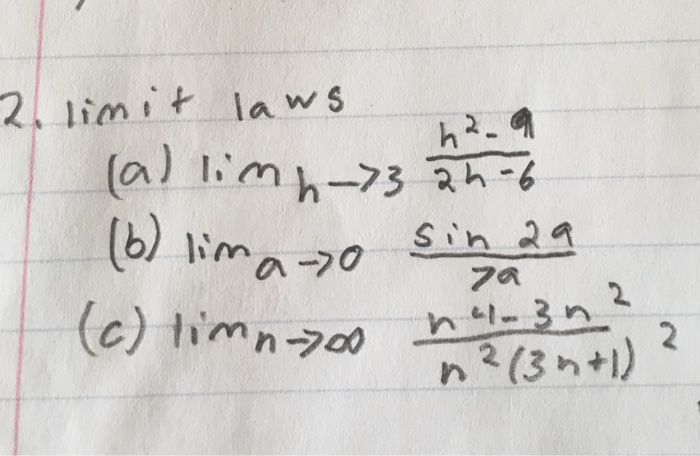 2. limit laws
(a) lim h->3 h²-9
2h-6
(b) lim a->0 sin 2a
7a
(c) lim n->∞ n⁴-3n²
n²(3n+1)²